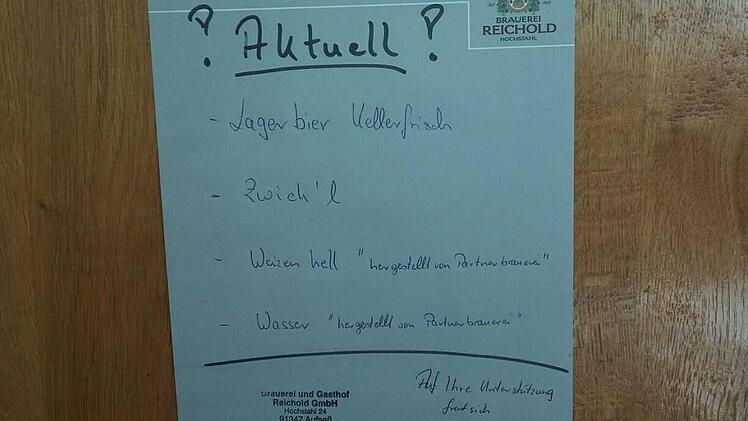 BRAUEREI
REICHOLD
HOCHSTAHL
! Aktuell !
- Lagerbier Kellerfrisch
- Zwick'l
- Weizen hell "hergestellt von Partnerbrauerei"
- Wasser "hergestellt von Partnerbrauerei"
Brauerei und Gasthof
Reichold GmbH
Hochstahl 24
91347 Aufseß
Auf Ihre Unterstützung
freut sich